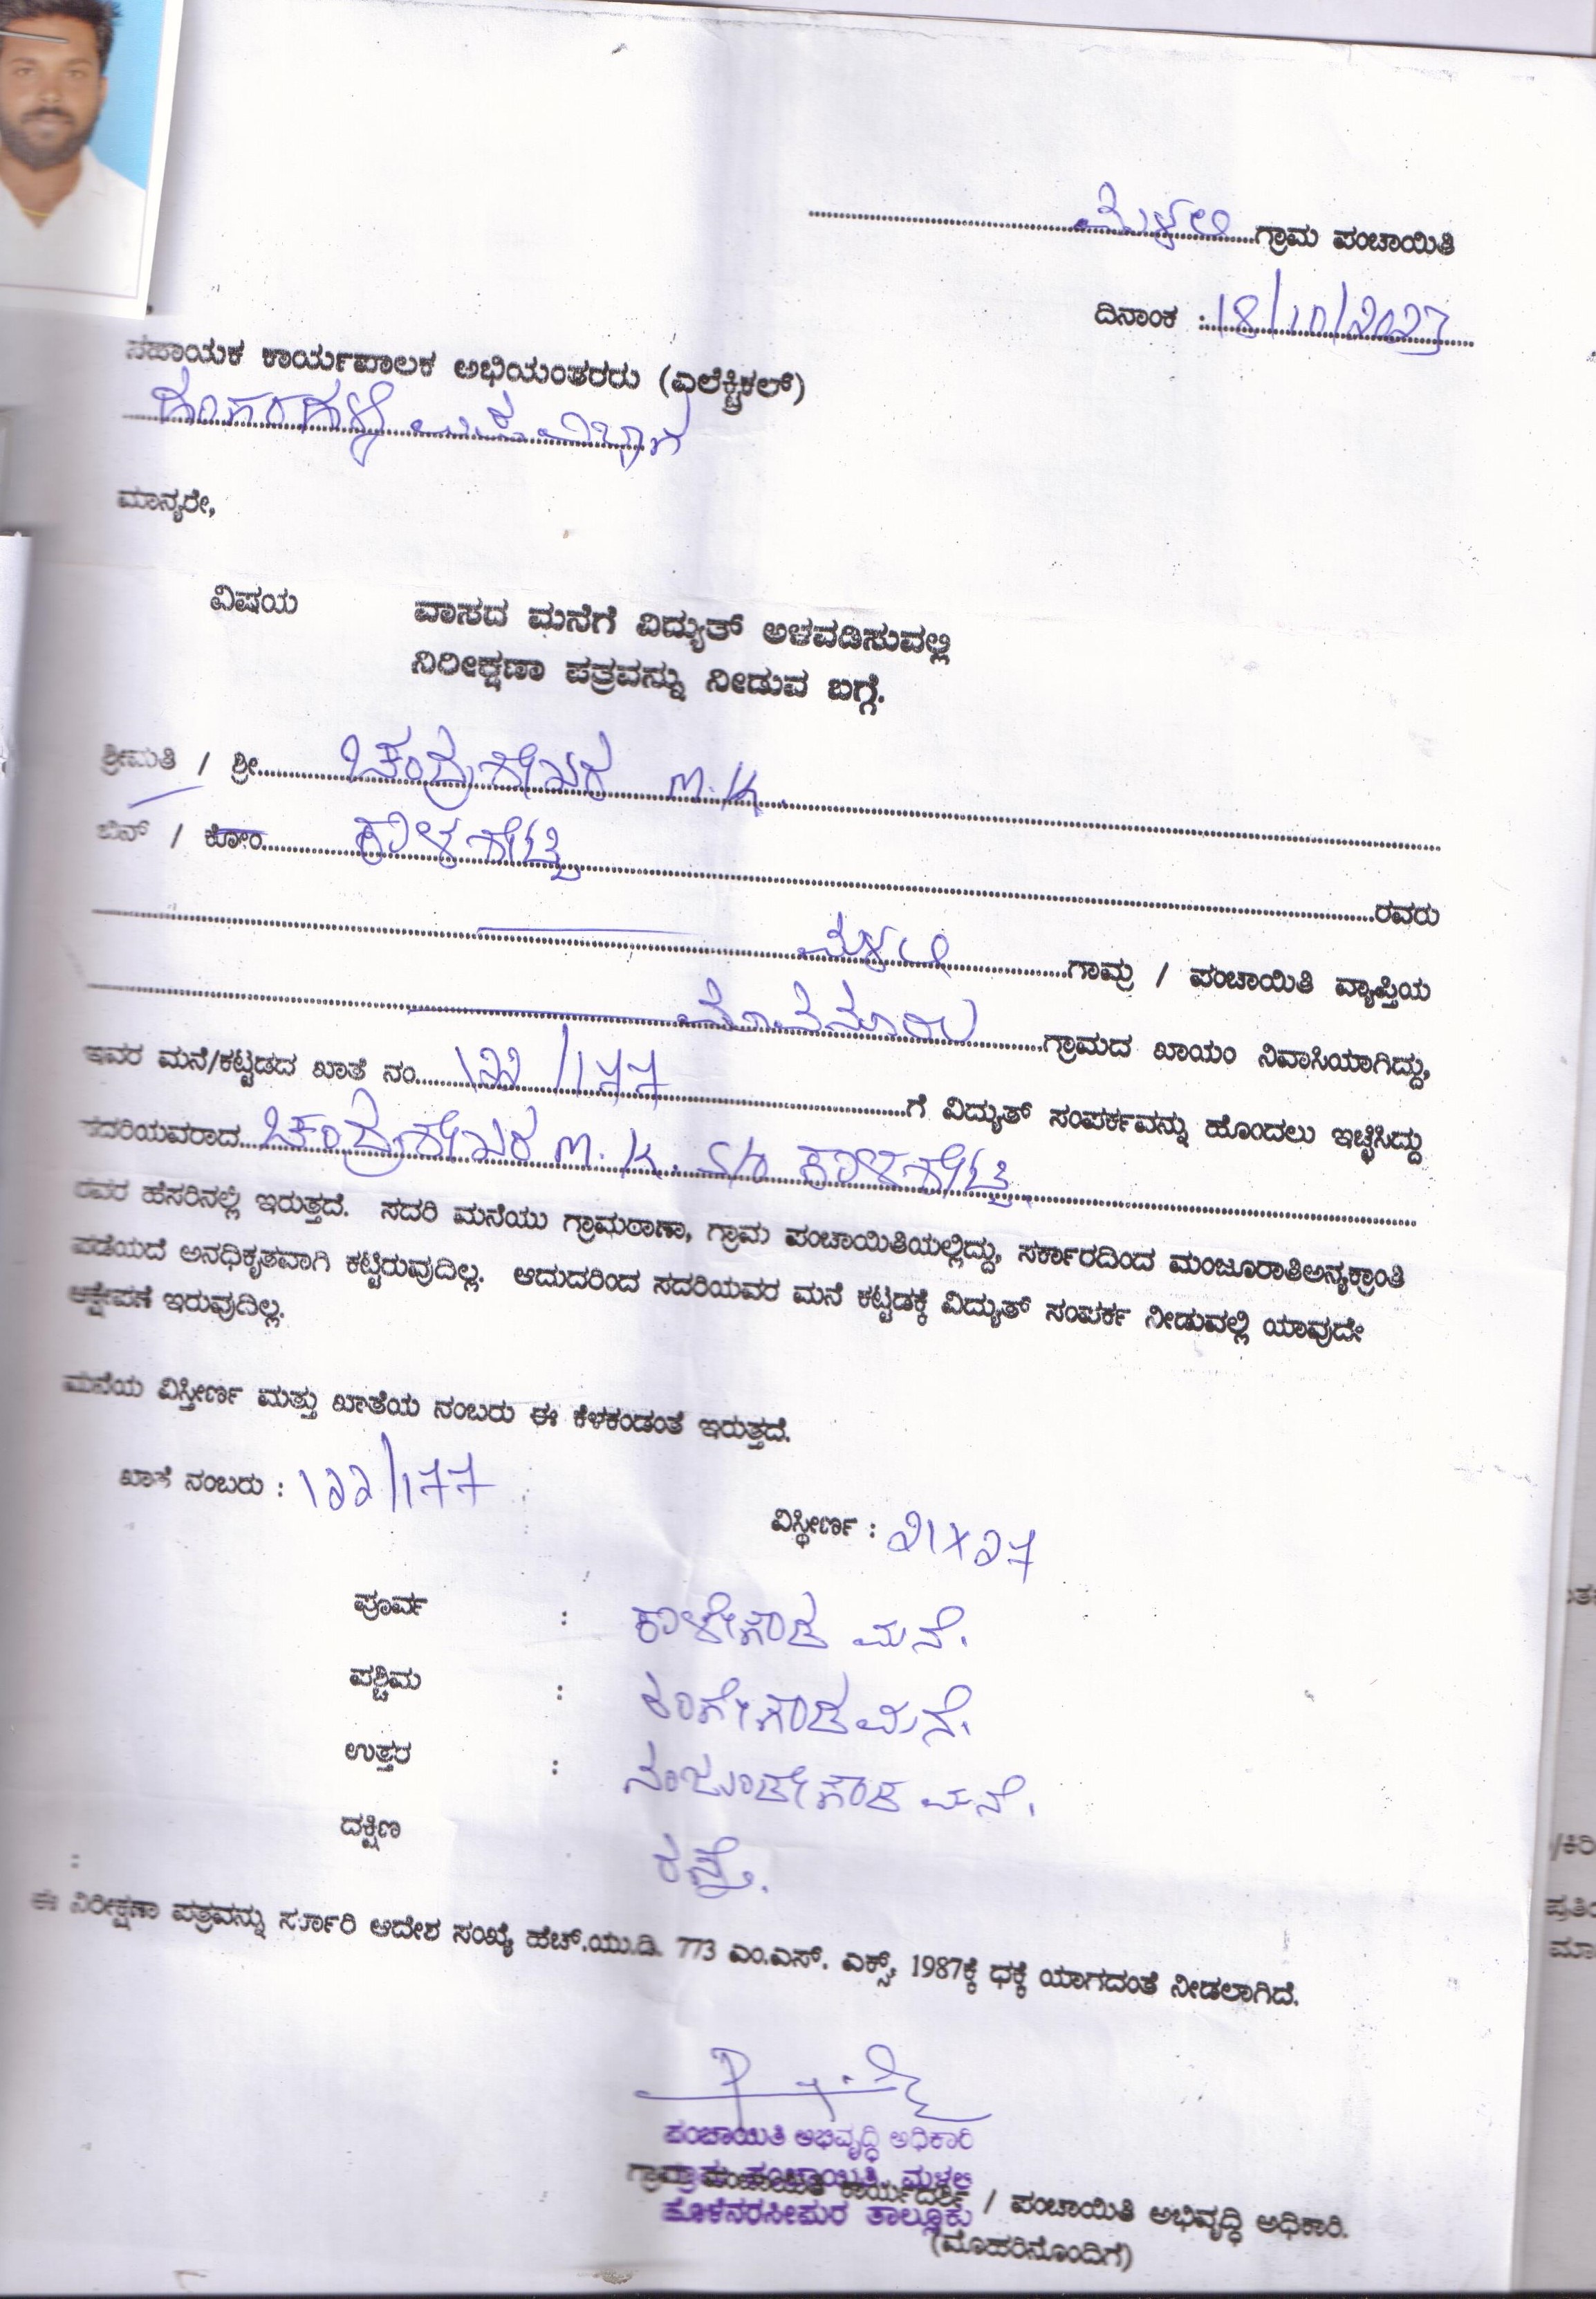 ಮಳಲಿ ಗ್ರಾಮ ಪಂಚಾಯಿತಿ
ದಿನಾಂಕ : 18/10/2023
ಸಹಾಯಕ ಕಾರ್ಯಪಾಲಕ ಅಭಿಯಂತರರು (ಎಲೆಕ್ಟ್ರಿಕಲ್)
ಮಾನ್ಯರೇ,
ವಿಷಯ ವಾಸದ ಮನೆಗೆ ವಿದ್ಯುತ್ ಅಳವಡಿಸುವಲ್ಲಿ
ನಿರೀಕ್ಷಣಾ ಪತ್ರವನ್ನು ನೀಡುವ ಬಗ್ಗೆ.
ಶ್ರೀಮತಿ / ಶ್ರೀ ಚಂದ್ರಶೇಖರ M.K.
ಬಿನ್ / ಕೋಂ ಕಾಳಶೆಟ್ಟಿ
ರವರು
ಮಳಲಿ ಗಾಮ್ರ / ಪಂಚಾಯಿತಿ ವ್ಯಾಪ್ತಿಯ
ಗ್ರಾಮದ ಖಾಯಂ ನಿವಾಸಿಯಾಗಿದ್ದು,
ಇವರ ಮನೆ/ಕಟ್ಟಡದ ಖಾತೆ ನಂ. 122/177 ಗೆ ವಿದ್ಯುತ್ ಸಂಪರ್ಕವನ್ನು ಹೊಂದಲು ಇಚ್ಛಿಸಿದ್ದು
ಸದರಿಯವರಾದ ಚಂದ್ರಶೇಖರ M.K. S/o ಕಾಳಶೆಟ್ಟಿ
ರವರ ಹೆಸರಿನಲ್ಲಿ ಇರುತ್ತದೆ. ಸದರಿ ಮನೆಯು ಗ್ರಾಮಠಾಣಾ, ಗ್ರಾಮ ಪಂಚಾಯಿತಿಯಲ್ಲಿದ್ದು, ಸರ್ಕಾರದಿಂದ ಮಂಜೂರಾತಿಅನ್ಯಕ್ರಾಂತಿ
ಪಡೆಯದೆ ಅನಧಿಕೃತವಾಗಿ ಕಟ್ಟಿರುವುದಿಲ್ಲ. ಆದುದರಿಂದ ಸದರಿಯವರ ಮನೆ ಕಟ್ಟಡಕ್ಕೆ ವಿದ್ಯುತ್ ಸಂಪರ್ಕ ನೀಡುವಲ್ಲಿ ಯಾವುದೇ
ಆಕ್ಷೇಪಣೆ ಇರುವುದಿಲ್ಲ.
ಮನೆಯ ವಿಸ್ತೀರ್ಣ ಮತ್ತು ಖಾತೆಯ ನಂಬರು ಈ ಕೆಳಕಂಡಂತೆ ಇರುತ್ತದೆ.
ಖಾತೆ ನಂಬರು : 122/177
ವಿಸ್ಥೀರ್ಣ : 21x27
ಪೂರ್ವ : ಕಾಳೇಗೌಡ ಮನೆ.
ಪಶ್ಚಿಮ : ರಂಗೇಗೌಡ ಮನೆ.
ಉತ್ತರ : ನಂಜುಂಡೇಗೌಡ ಮನೆ.
ದಕ್ಷಿಣ ರಸ್ತೆ.
:
ಈ ನಿರೀಕ್ಷಣಾ ಪತ್ರವನ್ನು ಸರ್ಕಾರಿ ಆದೇಶ ಸಂಖ್ಯೆ ಹೆಚ್.ಯು.ಡಿ. 773 ಎಂ.ಎಸ್. ಎಕ್ಸ್, 1987ಕ್ಕೆ ಧಕ್ಕೆ ಯಾಗದಂತೆ ನೀಡಲಾಗಿದೆ.
ಪಂಚಾಯಿತಿ ಅಭಿವೃದ್ಧಿ ಅಧಿಕಾರಿ
ಗ್ರಾಮ ಪಂಚಾಯಿತಿ, ಮಳಲಿ
ಗ್ರಾಮ ಪಂಚಾಯಿತಿ ಕಾರ್ಯದರ್ಶಿ / ಪಂಚಾಯಿತಿ ಅಭಿವೃದ್ಧಿ ಅಧಿಕಾರಿ.
ಹೊಳೆನರಸೀಪುರ ತಾಲ್ಲೂಕು
(ಮೊಹರಿನೊಂದಿಗೆ)